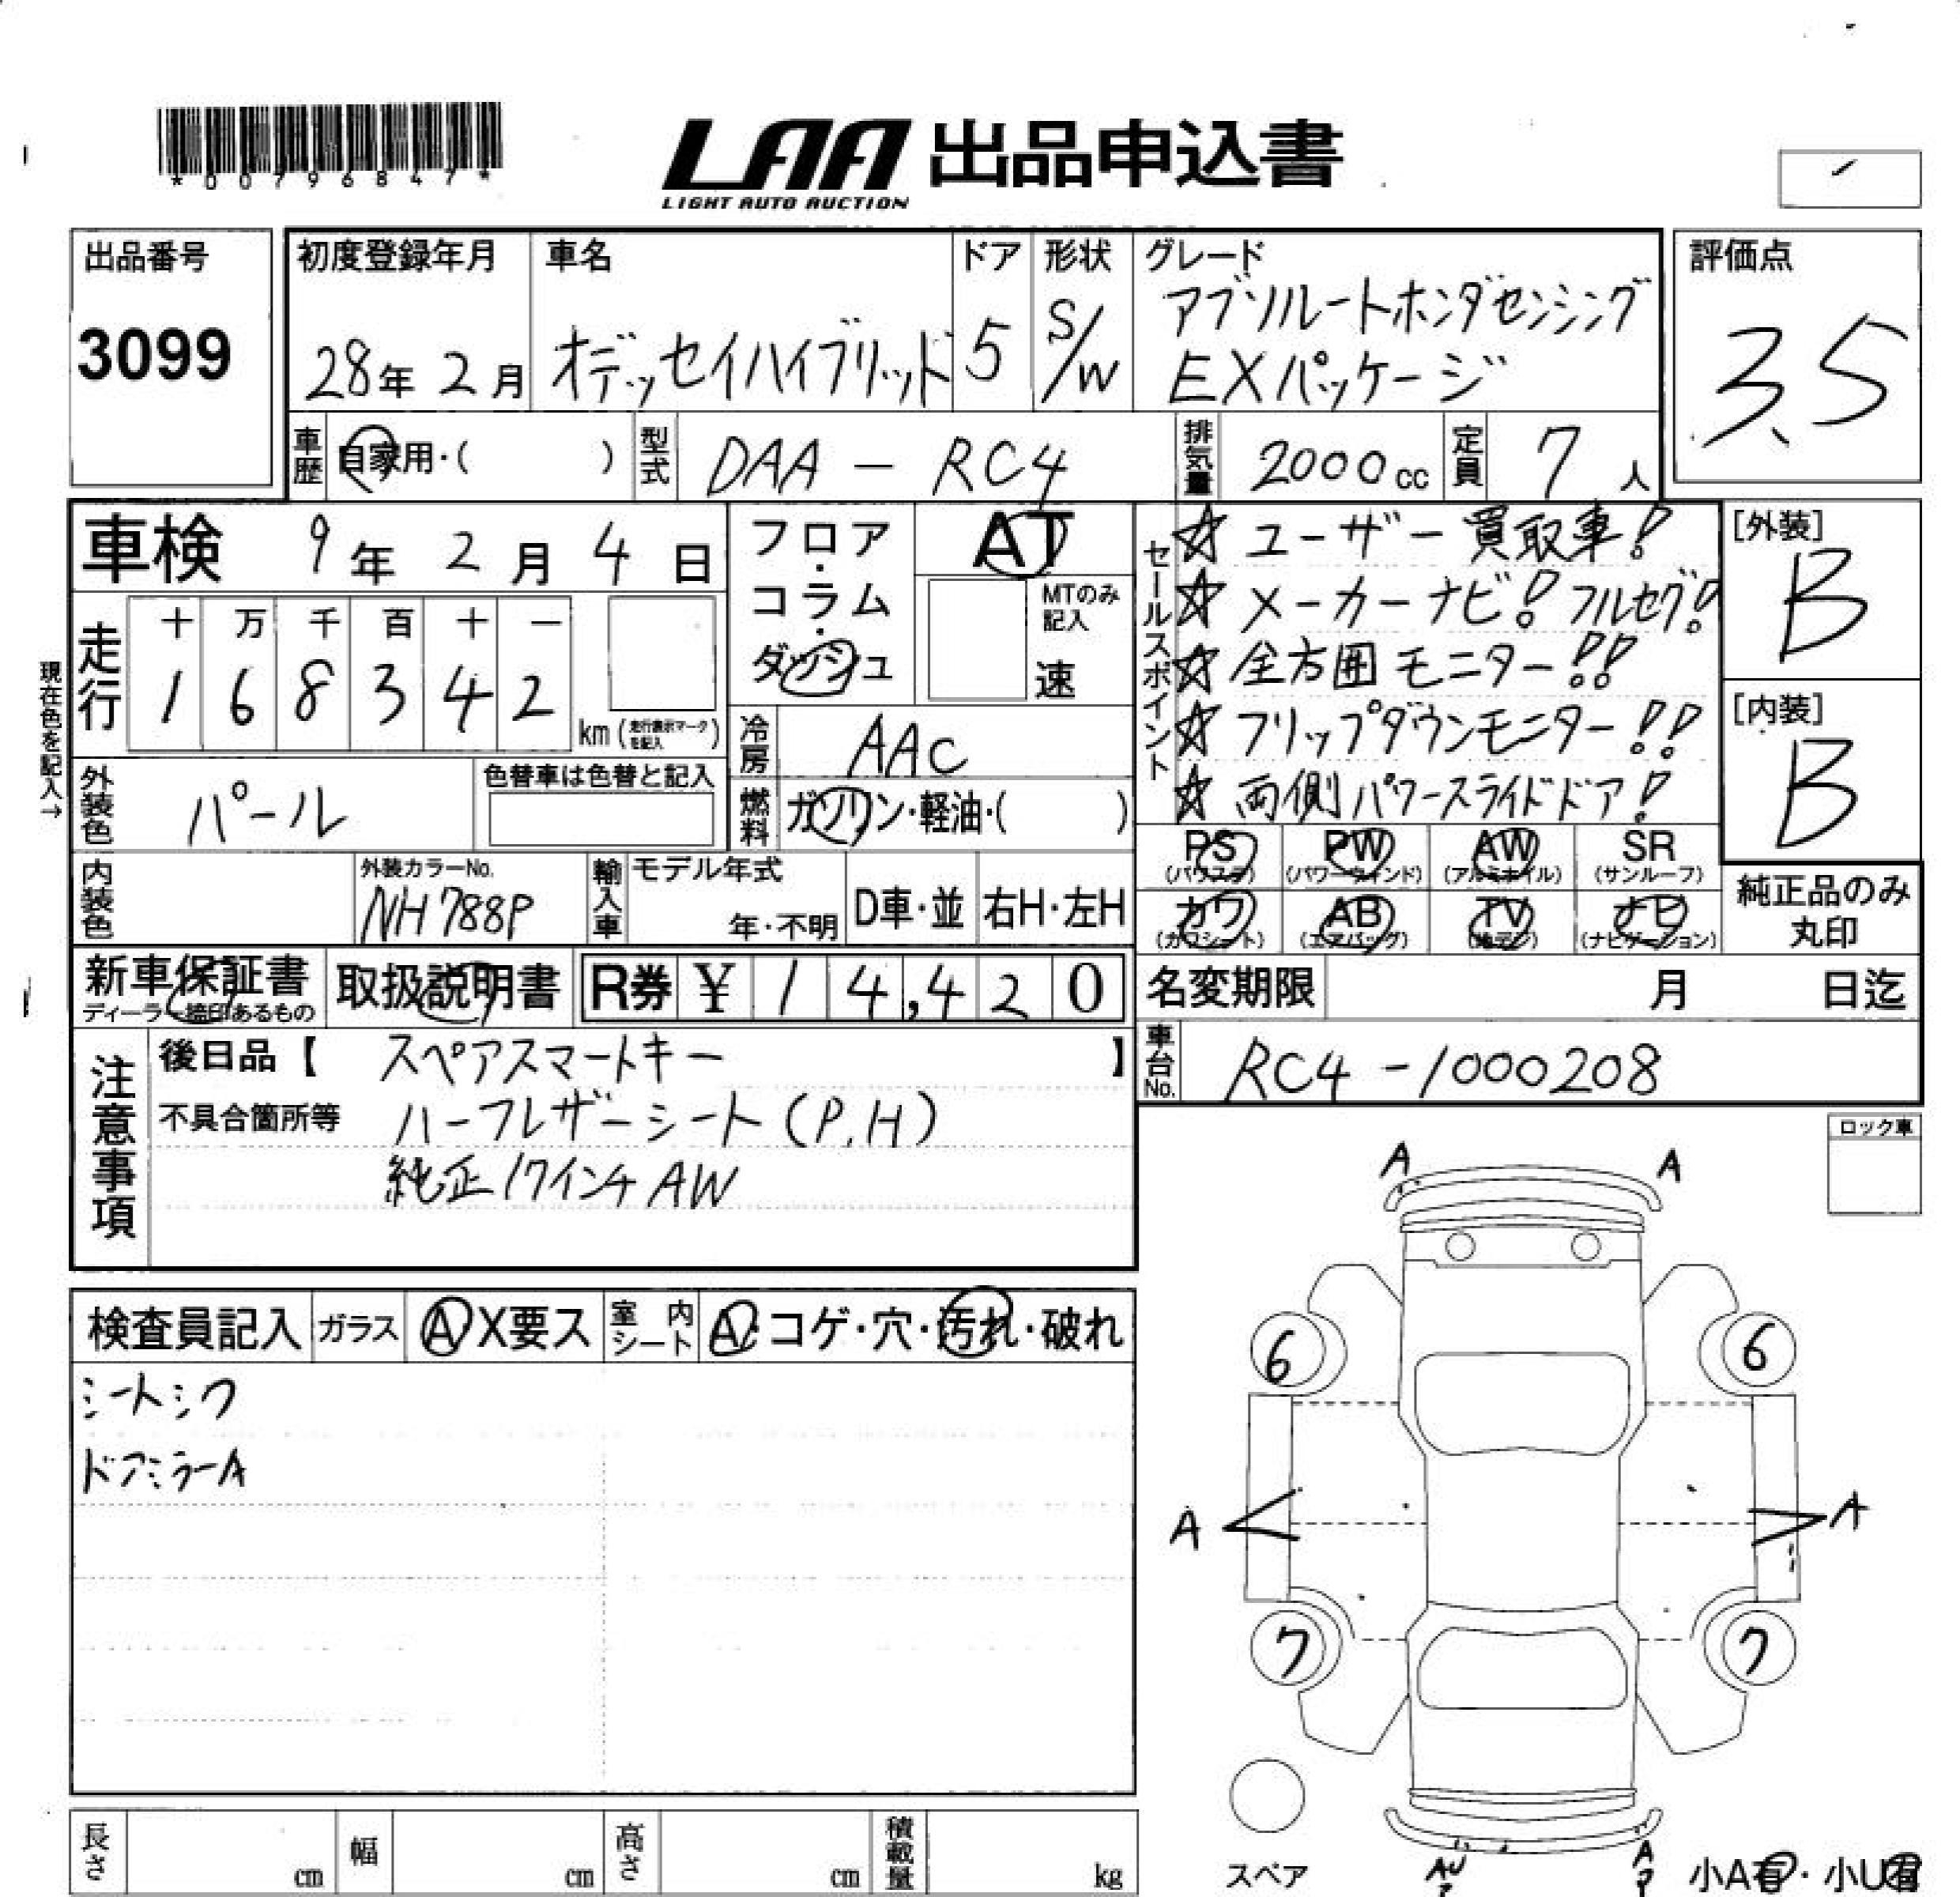 *00796847*
LAA 出品申込書
LIGHT AUTO AUCTION
出品番号
3099
初度登録年月
28年2月
車名
オデッセイハイブリッド
ドア
5
形状
S/W
グレード
アブソルートホンダセンシング
EXパッケージ
評価点
3.5
車歴 自家用・( )
型式 DAA - RC4
排気量 2000cc
定員 7人
車検 9年2月4日
走行
十 万 千 百 十 一
1 6 8 3 4 2
km(走行表示マークを記入)
現在色を記入→
フロア・コラム・ダッシュ
AT
MTのみ記入
速
冷房 AAC
燃料 ガソリン・軽油・( )
セールスポイント
☆ユーザー買取車!
☆メーカーナビ!フルセグ!
☆全方囲モニター!!
☆フリップダウンモニター!!
☆両側パワースライドドア!
[外装]
B
[内装]
B
外装色 パール
色替車は色替と記入
内装色
外装カラーNo.
NH788P
輸入車
モデル年式
年・不明
D車・並
右H・左H
PS (パワステ)
PW (パワーウィンド)
AW (アルミホイル)
SR (サンルーフ)
カワ (カワシート)
AB (エアバッグ)
TV (地デジ)
ナビ (ナビゲーション)
純正品のみ
丸印
新車保証書
ディーラー捺印あるもの
取扱説明書
R券 ¥14,420
名変期限 月 日迄
車台No. RC4-1000208
注意事項
後日品【 スペアスマートキー 】
不具合箇所等 ハーフレザーシート(P,H)
純正17インチAW
ロック車
検査員記入
ガラス A X要ス
室内シート A・コゲ・穴・汚れ・破れ
シートシワ
ドアミラーA
A A
6 6
A A
7 7
スペア
AU
A
小A有・小U有
長さ cm
幅 cm
高さ cm
積載量 kg